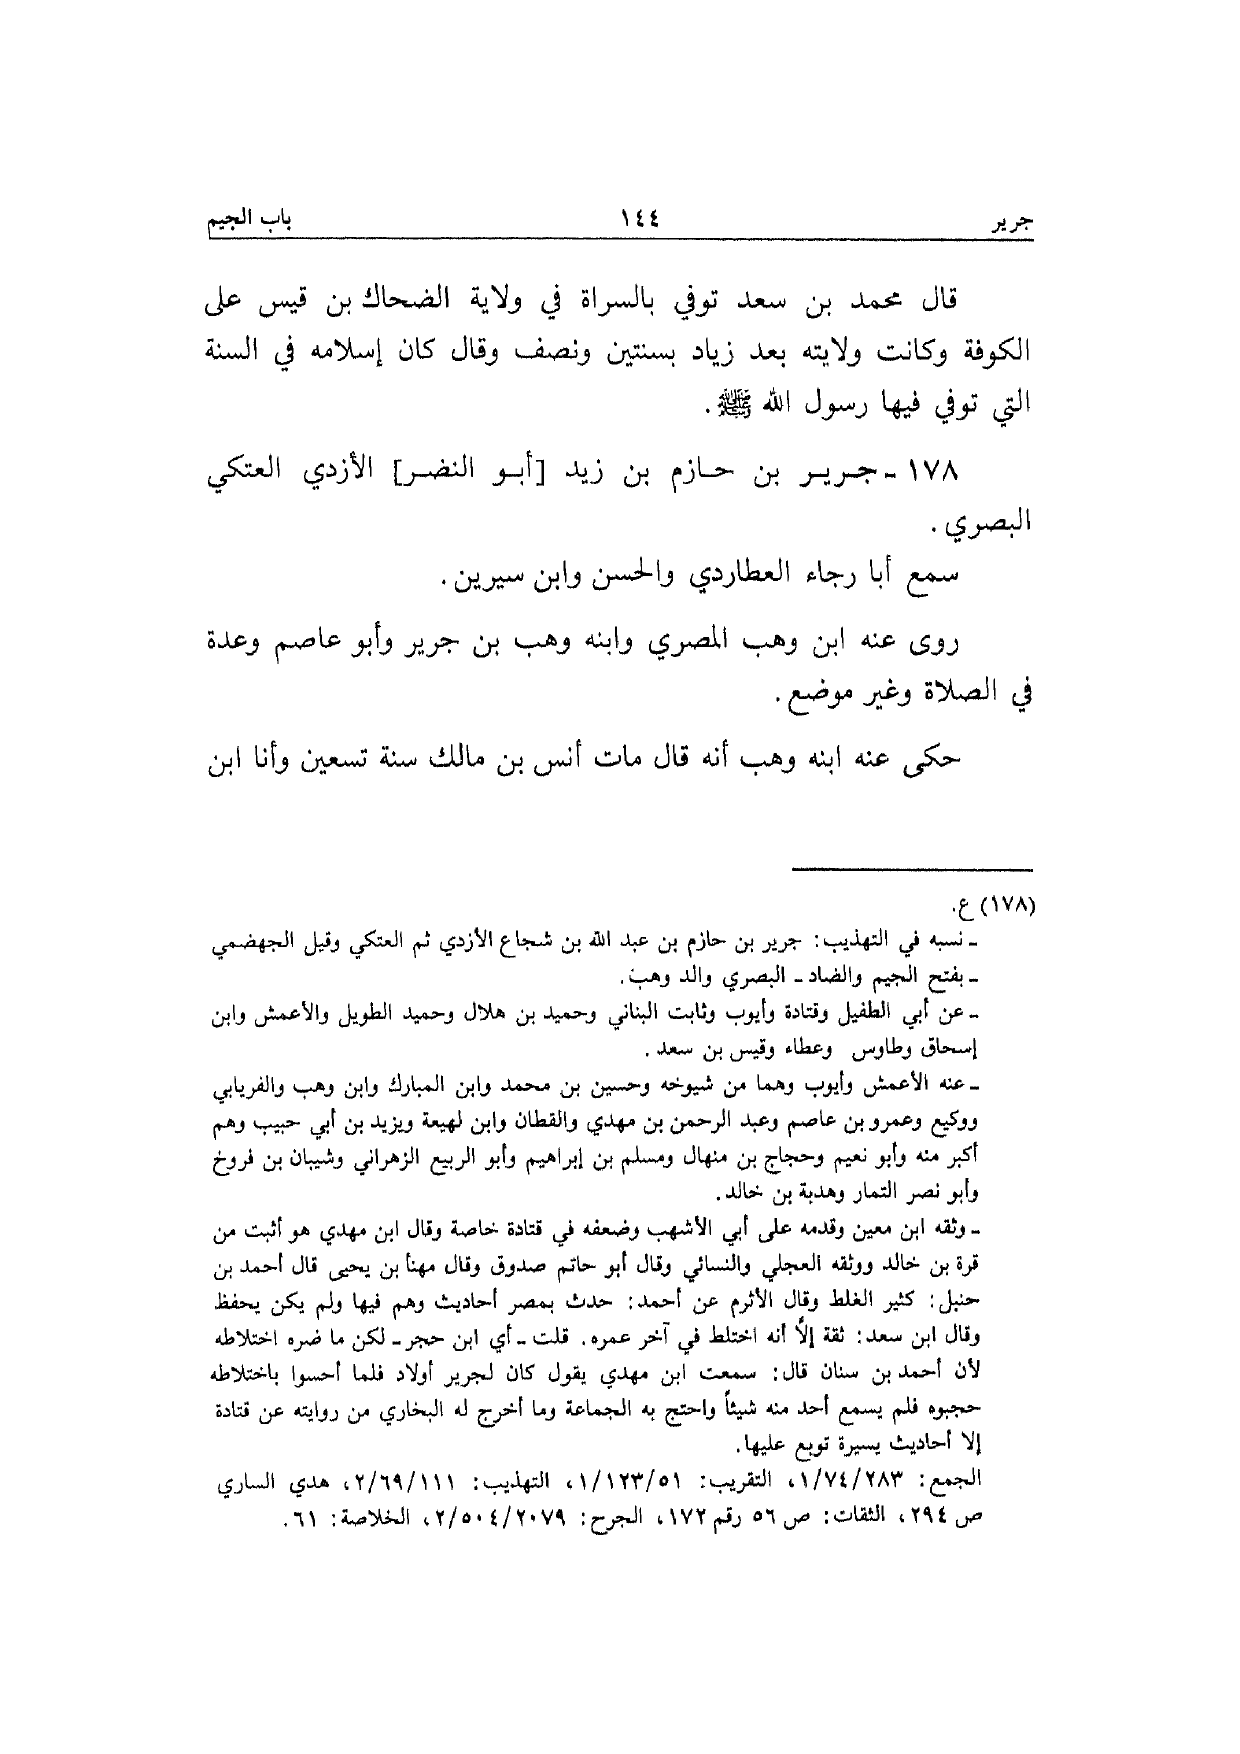 جرير ١٤٤ باب الجيم
قال محمد بن سعد توفي بالسراة في ولاية الضحاك بن قيس على
الكوفة وكانت ولايته بعد زياد بسنتين ونصف وقال كان إسلامه في السنة
التي توفي فيها رسول الله ﷺ.
١٧٨ - جرير بن حازم بن زيد [أبو النضر] الأزدي العتكي
البصري.
سمع أبا رجاء العطاردي والحسن وابن سيرين.
روى عنه ابن وهب المصري وابنه وهب بن جرير وأبو عاصم وعدة
في الصلاة وغير موضع.
حكى عنه ابنه وهب أنه قال مات أنس بن مالك سنة تسعين وأنا ابن
(١٧٨) ع.
- نسبه في التهذيب: جرير بن حازم بن عبد الله بن شجاع الأزدي ثم العتكي وقيل الجهضمي
- بفتح الجيم والضاد - البصري والد وهب.
- عن أبي الطفيل وقتادة وأيوب وثابت البناني وحميد بن هلال وحميد الطويل والأعمش وابن
إسحاق وطاوس وعطاء وقيس بن سعد.
- عنه الأعمش وأيوب وهما من شيوخه وحسين بن محمد وابن المبارك وابن وهب والفريابي
ووكيع وعمرو بن عاصم وعبد الرحمن بن مهدي والقطان وابن لهيعة ويزيد بن أبي حبيب وهم
أكبر منه وأبو نعيم وحجاج بن منهال ومسلم بن إبراهيم وأبو الربيع الزهراني وشيبان بن فروخ
وأبو نصر التمار وهدبة بن خالد.
- وثقه ابن معين وقدمه على أبي الأشهب وضعفه في قتادة خاصة وقال ابن مهدي هو أثبت من
قرة بن خالد ووثقه العجلي والنسائي وقال أبو حاتم صدوق وقال مهنأ بن يحيى قال أحمد بن
حنبل: كثير الغلط وقال الأثرم عن أحمد: حدث بمصر أحاديث وهم فيها ولم يكن يحفظ
وقال ابن سعد: ثقة إلاَّ أنه اختلط في آخر عمره. قلت - أي ابن حجر - لكن ما ضره اختلاطه
لأن أحمد بن سنان قال: سمعت ابن مهدي يقول كان لجرير أولاد فلما أحسوا باختلاطه
حجبوه فلم يسمع أحد منه شيئاً واحتج به الجماعة وما أخرج له البخاري من روايته عن قتادة
إلا أحاديث يسيرة توبع عليها.
الجمع: ١/٧٤/٢٨٣، التقريب: ١/١٢٣/٥١، التهذيب: ٢/٦٩/١١١، هدي الساري
ص ٢٩٤، الثقات: ص ٥٦ رقم ١٧٢، الجرح: ٢/٥٠٤/٢٠٧٩، الخلاصة: ٦١.